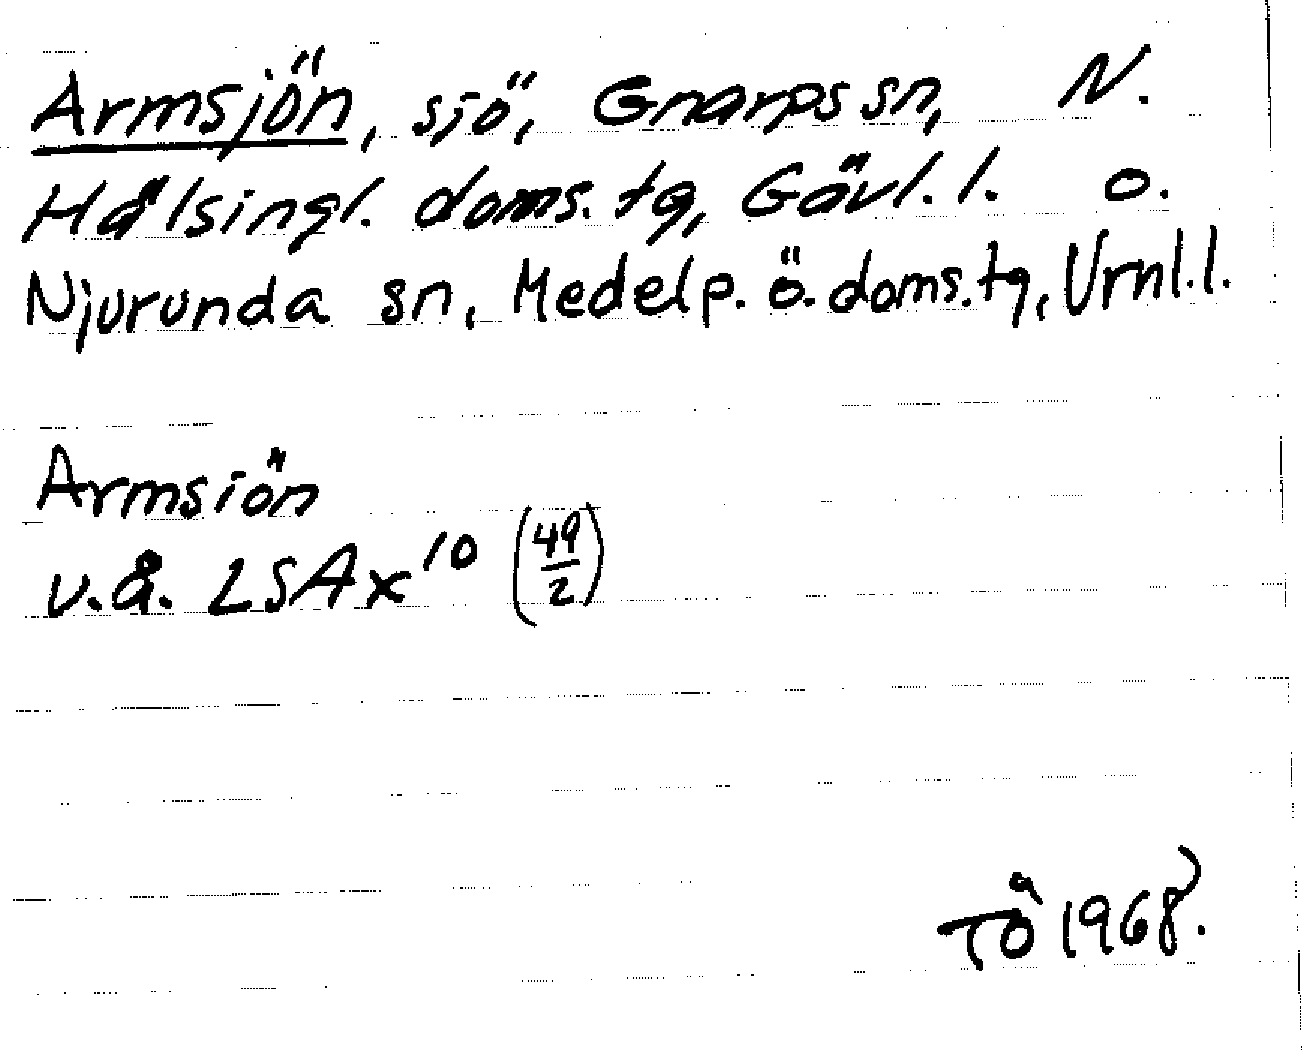 Armsjön, sjö, Gnarps sn, N.
Hälsingl. doms.tg, Gävl.l. o.
Njurunda sn, Medelp. ö. doms.tg, Vrnl.l.
Armsiön
u.å. LSA x¹⁰ (49/2)
TÖ 1968.